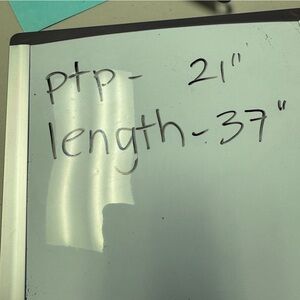 ptp- 21"
length-37"